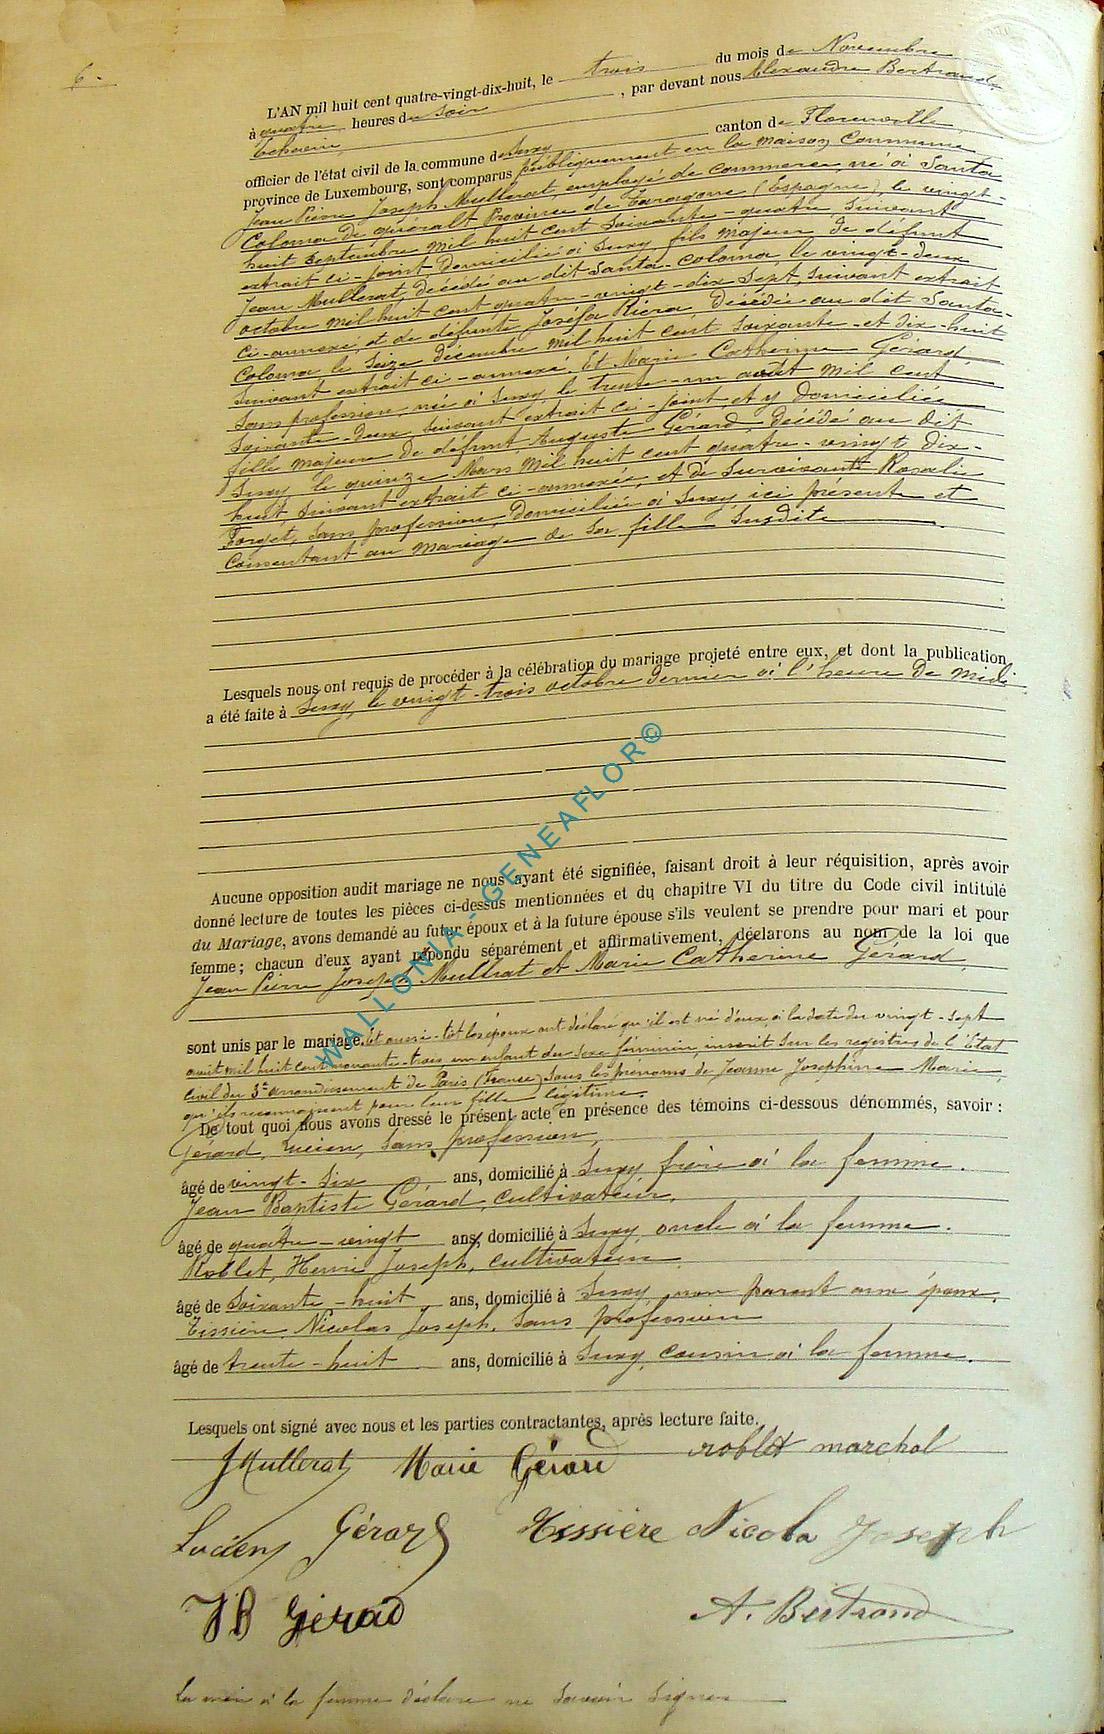 6.
L'AN mil huit cent quatre-vingt-dix-huit, le trois du mois de Novembre
à quatre heures du soir , par devant nous Alexandre Bertrand,
Echevin
officier de l'état civil de la commune de Suxy canton de Florenville,
province de Luxembourg, sont comparus publiquement en la maison Commune
Jean Pierre Joseph Mullerat, employé de commerce, né à Santa
Coloma de quéralt Province de Taragone (Espagne) le vingt-
huit Septembre mil huit cent Soixante-quatre, Suivant
extrait ci-joint, domicilié à Suxy fils majeur de défunt
Jean Mullerat, décédé au dit Santa-Coloma, le vingt-deux
octobre mil huit cent quatre-vingt-dix Sept, Suivant extrait
ci-annexé, et de défunte Joséfa Riera, Décédée au dit Santa-
Coloma le Seize décembre mil huit cent Soixante-et Dix-huit
Suivant extrait ci-annexé. Et Marie Catherine Gérard
Sans profession née à Suxy le trente-un août mil cent
Soixante-Deux Suivant extrait ci-joint, et y domiciliée
fille majeure de défunt Auguste Gérard, décédé au dit
Suxy, le quinze Mars mil huit cent quatre-vingt Dix-
huit, Suivant extrait ci-annexée, et de Survivante Rosalie
Forget, Sans profession, Domiciliée à Suxy ici présente et
Consentant au mariage de Sa fille Susdite
Lesquels nous ont requis de procéder à la célébration du mariage projeté entre eux, et dont la publication
a été faite à Suxy, le vingt-trois octobre dernier à l'heure de midi
Aucune opposition audit mariage ne nous ayant été signifiée, faisant droit à leur réquisition, après avoir
donné lecture de toutes les pièces ci-dessus mentionnées et du chapitre VI du titre du Code civil intitulé
du Mariage, avons demandé au futur époux et à la future épouse s'ils veulent se prendre pour mari et pour
femme; chacun d'eux ayant répondu séparément et affirmativement, déclarons au nom de la loi que
Jean Pierre Joseph Mullrat et Marie Catherine Gérard,
sont unis par le mariage. Et aussi-tôt les époux ont déclaré qu'il est né d'eux, à la date du vingt-sept
août mil huit cent nonante-trois un enfant du sexe féminin, inscrit sur les registres de l'Etat
civil du 3e arrondissement de Paris (France) sous les prénoms de Jeanne Joséphine Marie,
qu'ils reconnaissent pour leur fille légitime.
De tout quoi nous avons dressé le présent acte en présence des témoins ci-dessous dénommés, savoir :
Gérard, Lucien, Sans profession,
âgé de vingt-Six ans, domicilié à Suxy frère à la femme.
Jean Baptiste Gérard, cultivateur,
âgé de quatre-vingt ans, domicilié à Suxy, oncle à la femme.
Roblet, Henri Joseph, cultivateur
âgé de Soixante-huit ans, domicilié à Suxy, non parent aux époux.
Tissière, Nicolas Joseph, Sans profession
âgé de trente-huit ans, domicilié à Suxy, cousin à la femme.
Lesquels ont signé avec nous et les parties contractantes, après lecture faite.
JMullerat Marie Gérard roblet marchal
Lucien Gérard Tissière Nicola Joseph
JB Gérard A. Bertrand
La mère à la femme déclare ne Savoir Signer
WALLONIA - GENEAFLOR©